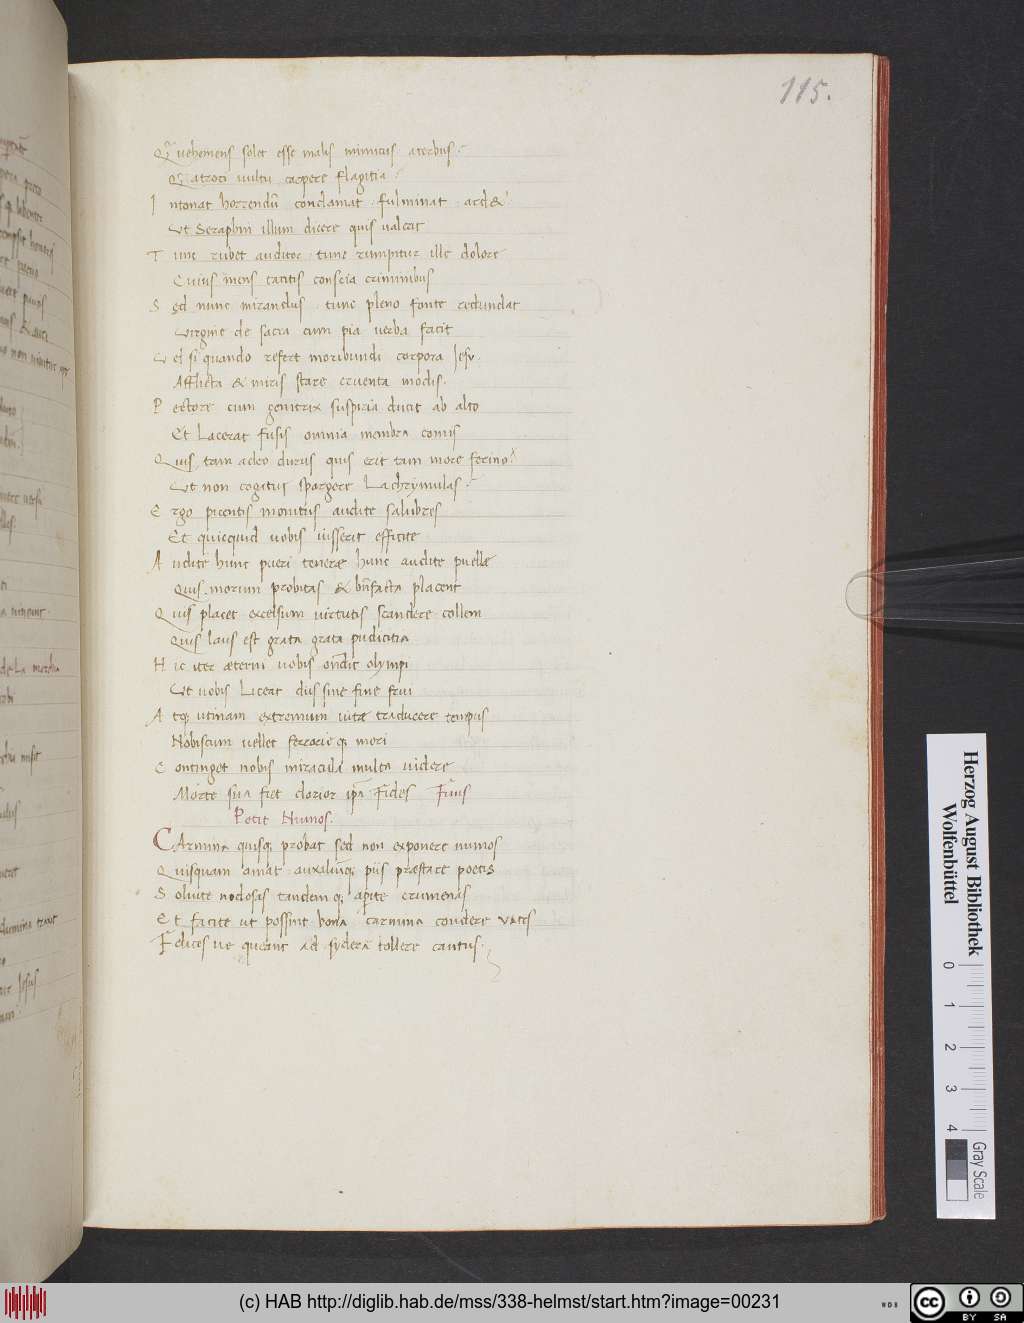 115.
Qᷓ vehemens solet esse malis inimicus acerbus.
Qᷓ atroci uultu carpere flagitia.
Intonat horrendũ conclamat. fulminat. ard&.
Ut Seraphin illum dicere quis ualeat
Tunc rubet auditor. tunc rumpitur ille dolore
Cuius mens tacitis conscia criminibus
Sed nunc mirandus. tunc pleno fonte redundat
Virgine de sacra cum pia uerba facit
Vel si quando refert moribundi corpora Jesu.
Afflicta & miris stare cruenta modis.
Pectore cum genitrix suspiria ducit ab alto
Et Lacerat fusis omnia membra comis
Quis tam adeo durus quis erit tam more ferino?
Ut non cogatur spargere Lachrymulas.
Ergo picentis monitus audite salubres
Et quicquid uobis iusserit efficite
Audite hunc pueri teneræ hunc audite puellæ
Quis morum probitas & bñfacta placent
Quis placet excelsum uirtutis scandere collem
Quis laus est grata grata pudicitia
Hic iter æterni uobis oñdit olympi
Ut uobis Liceat diis sine fine frui
Atq; utinam extremum uitæ traducere tempus
Nobiscum uellet ferrarie q; mori
Continget nobis miracula multa uidere
Morte sua fiet clarior ipa Fides Finis
Petit Numos.
CArmina quisq; probat sed non exponere numos
Quisquam amat. auxiliũq; piis præstare poetis
Soluite nodosas tandem q; aperite crumenas
Et facite ut possint bona carmina condere vates
Felices ue queant ad sydera tollere cantus.
Herzog August Bibliothek
Wolfenbüttel
0 1 2 3 4
Gray Scale
(c) HAB http://diglib.hab.de/mss/338-helmst/start.htm?image=00231
WDB
cc
BY SA